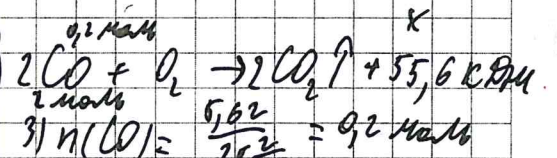 0,2 моль x
2CO + O₂ → 2CO₂↑ + 55,6 кДж
2 моль
3) n(CO) = 5,6г = 0,2 моль